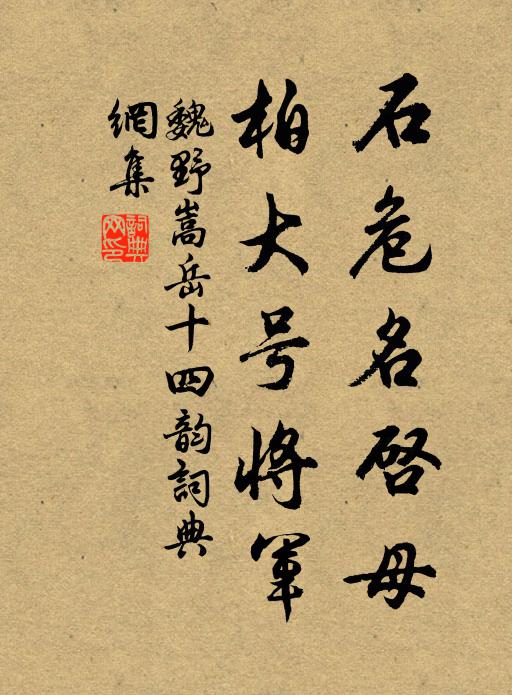 石危名啓母
柏大号將軍
魏野嵩岳十四韵詞典
網集
詞典网印